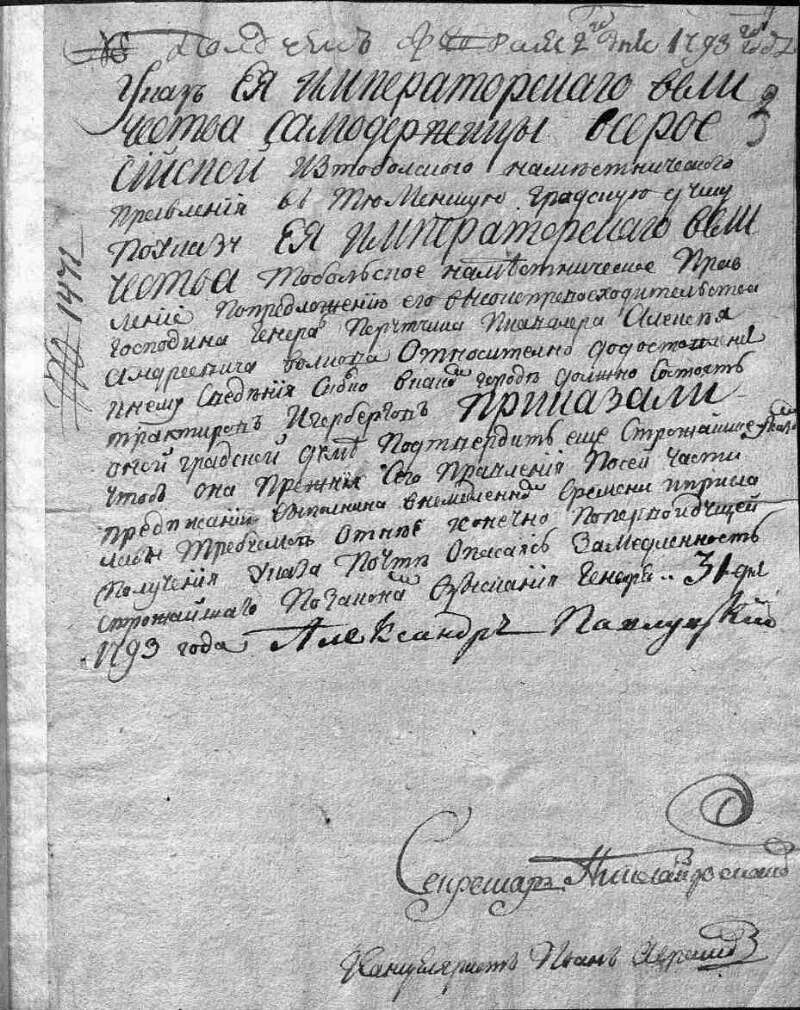 Полученъ 2 1793 году
Указъ ЕЯ императорскаго вели
чества самодержицы всерос
сійской изтоболского намѣстнического
правленія въ Тюменскую градскую думу
поуказу ЕЯ императорскаго вели
чества Тобольское намѣстническое прав
леніе Попредложенію его высокопревосходительства
господина Генералъ Порутчика Кавалера Алексея
Андреевича волкова Относително додоставленія
кнему Сведенія
трактировъ Игербергов приказали
оной градской думѣ Подтвердить еще Строжайше указомъ
чтобъ она Прежнія Сего Правленія Посей части
предписаніи выполнила
требуемость конечно Попервоидущей
Полученія указа Почтѣ Опасаясь Замедленность
строжайшаго Позаконамъ взысканія Генваря 31 дня
1793 года Александръ Павлуцкій
№ 1472
Секретарь
Канцеляристъ Иванъ